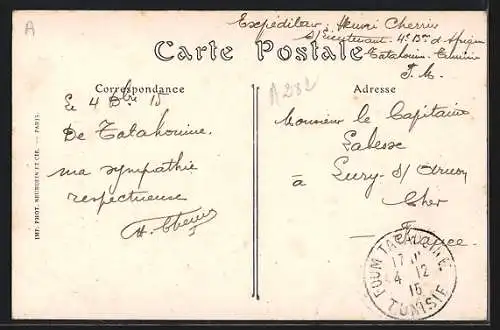 A
Expéditeur: Henri Cherrier
S/Lieutenant 4e Bon d'Afrique
Tatahouine Tunisie
F.M.
Carte Postale
A282
Correspondance
Adresse
Le 4 Xbre 15
De Tatahouine.
ma sympathie
respectueuse
H. Cherrier
Monsieur le Capitaine
Labesse
à Lury-s/Arnon
Cher
France
FOUM TATAHOUINE
17
4 12
15
TUNISIE
IMP. PHOT. NEURDEIN ET CIE. — PARIS.